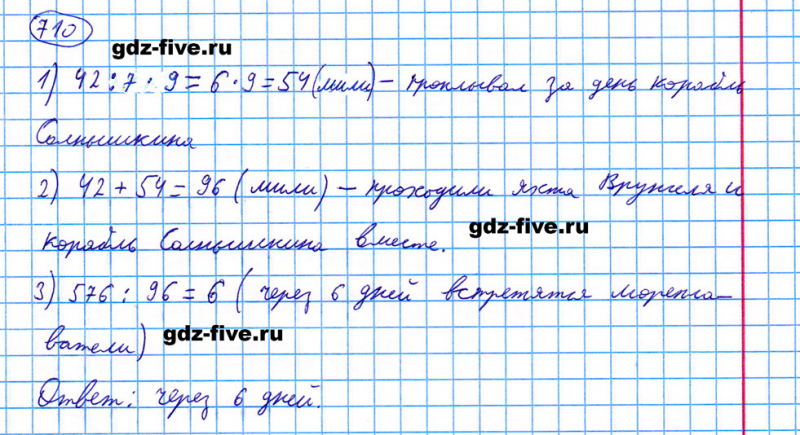 710
gdz-five.ru
1) 42 : 7 · 9 = 6 · 9 = 54 (мили) – проплывал за день корабль
Солнышкина
2) 42 + 54 = 96 (мили) – проходили яхта Врунгеля и
gdz-five.ru
корабль Солнышкина вместе.
3) 576 : 96 = 6 (через 6 дней встретятся морепла–
gdz-five.ru
ватели)
Ответ: через 6 дней.